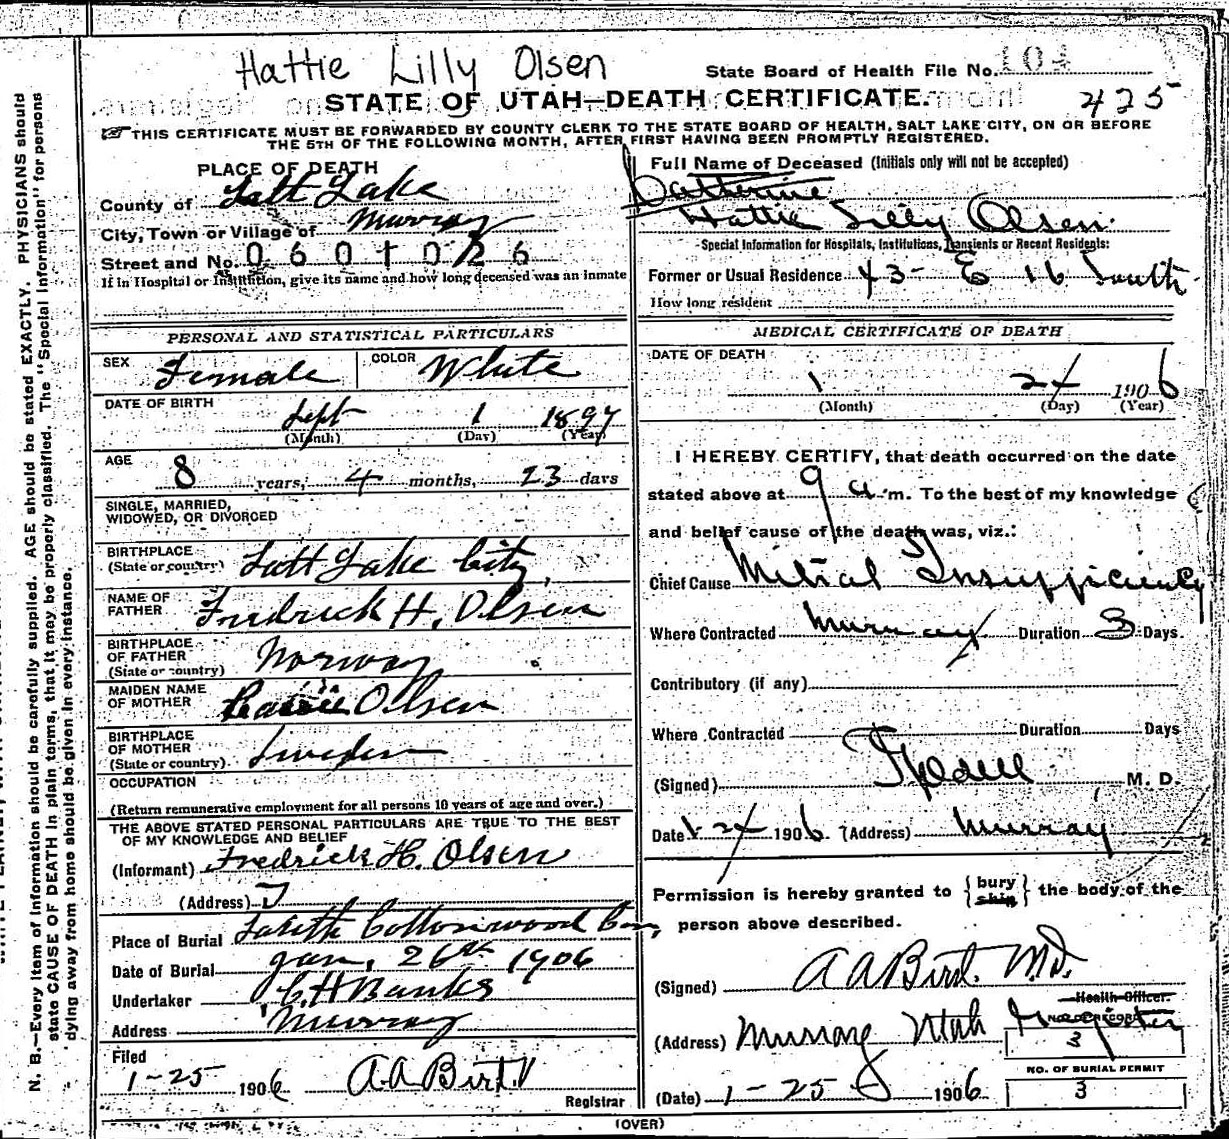 Hattie Lilly Olsen
State Board of Health File No. 104
STATE OF UTAH—DEATH CERTIFICATE.
425
THIS CERTIFICATE MUST BE FORWARDED BY COUNTY CLERK TO THE STATE BOARD OF HEALTH, SALT LAKE CITY, ON OR BEFORE
THE 5TH OF THE FOLLOWING MONTH, AFTER FIRST HAVING BEEN PROMPTLY REGISTERED.
PLACE OF DEATH
County of Salt Lake
City, Town or Village of Murray
Street and No. 0601026
If in Hospital or Institution, give its name and how long deceased was an inmate
Full Name of Deceased (Initials only will not be accepted)
Catherine
Hattie Lilly Olsen
Special Information for Hospitals, Institutions, Transients or Recent Residents:
Former or Usual Residence 43- E 16 South
How long resident
PERSONAL AND STATISTICAL PARTICULARS
SEX Female COLOR White
DATE OF BIRTH
Sept 1 1897
(Month) (Day) (Year)
AGE
8 years, 4 months, 23 days
SINGLE, MARRIED,
WIDOWED, OR DIVORCED
BIRTHPLACE
(State or country) Salt Lake City,
NAME OF
FATHER Fredrick H. Olsen
BIRTHPLACE
OF FATHER
(State or country) Norway
MAIDEN NAME
OF MOTHER Olsen
BIRTHPLACE
OF MOTHER
(State or country) Sweden
OCCUPATION
(Return remunerative employment for all persons 10 years of age and over.)
THE ABOVE STATED PERSONAL PARTICULARS ARE TRUE TO THE BEST
OF MY KNOWLEDGE AND BELIEF
(Informant) Fredrick H. Olsen
(Address)
Place of Burial Cottonwood Cem,
Date of Burial Jan, 26th 1906
Undertaker C. H Banks
Address Murray
Filed
1-25 1906 A.A Birt
Registrar
MEDICAL CERTIFICATE OF DEATH
DATE OF DEATH
1 24 1906
(Month) (Day) (Year)
I HEREBY CERTIFY, that death occurred on the date
stated above at 9 a.m. To the best of my knowledge
and belief cause of the death was, viz.:
Chief Cause Mitral Insufficiency
Where Contracted Murray Duration 3 Days.
Contributory (if any)
Where Contracted Duration Days
(Signed) M. D.
Date 1-24 1906 (Address) Murray
Permission is hereby granted to {bury ship} the body of the
person above described.
(Signed) A A Birt. M.D.
Health Officer.
(Address) Murray Utah Register
3
NO. OF BURIAL PERMIT
(Date) 1-25 1906 3
(OVER)
N. B.—Every item of information should be carefully supplied. AGE should be stated EXACTLY. PHYSICIANS should
state CAUSE OF DEATH in plain terms, that it may be properly classified. The "Special Information" for persons
dying away from home should be given in every instance.